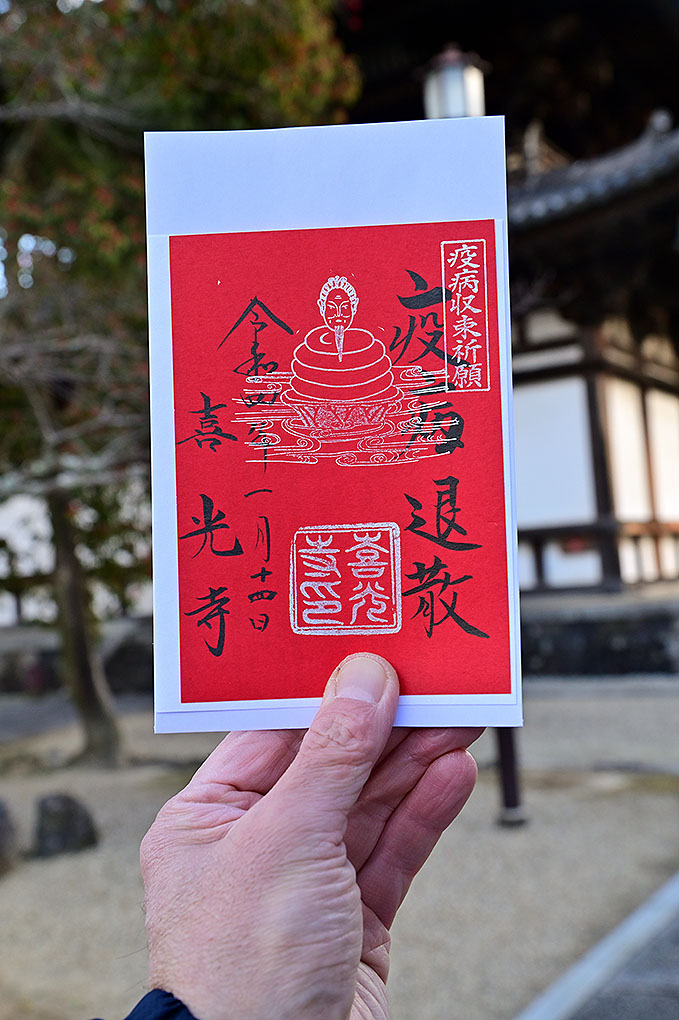 疫病収束祈願
疫病退散
令和四年一月十四日
喜光寺
喜光
寺印